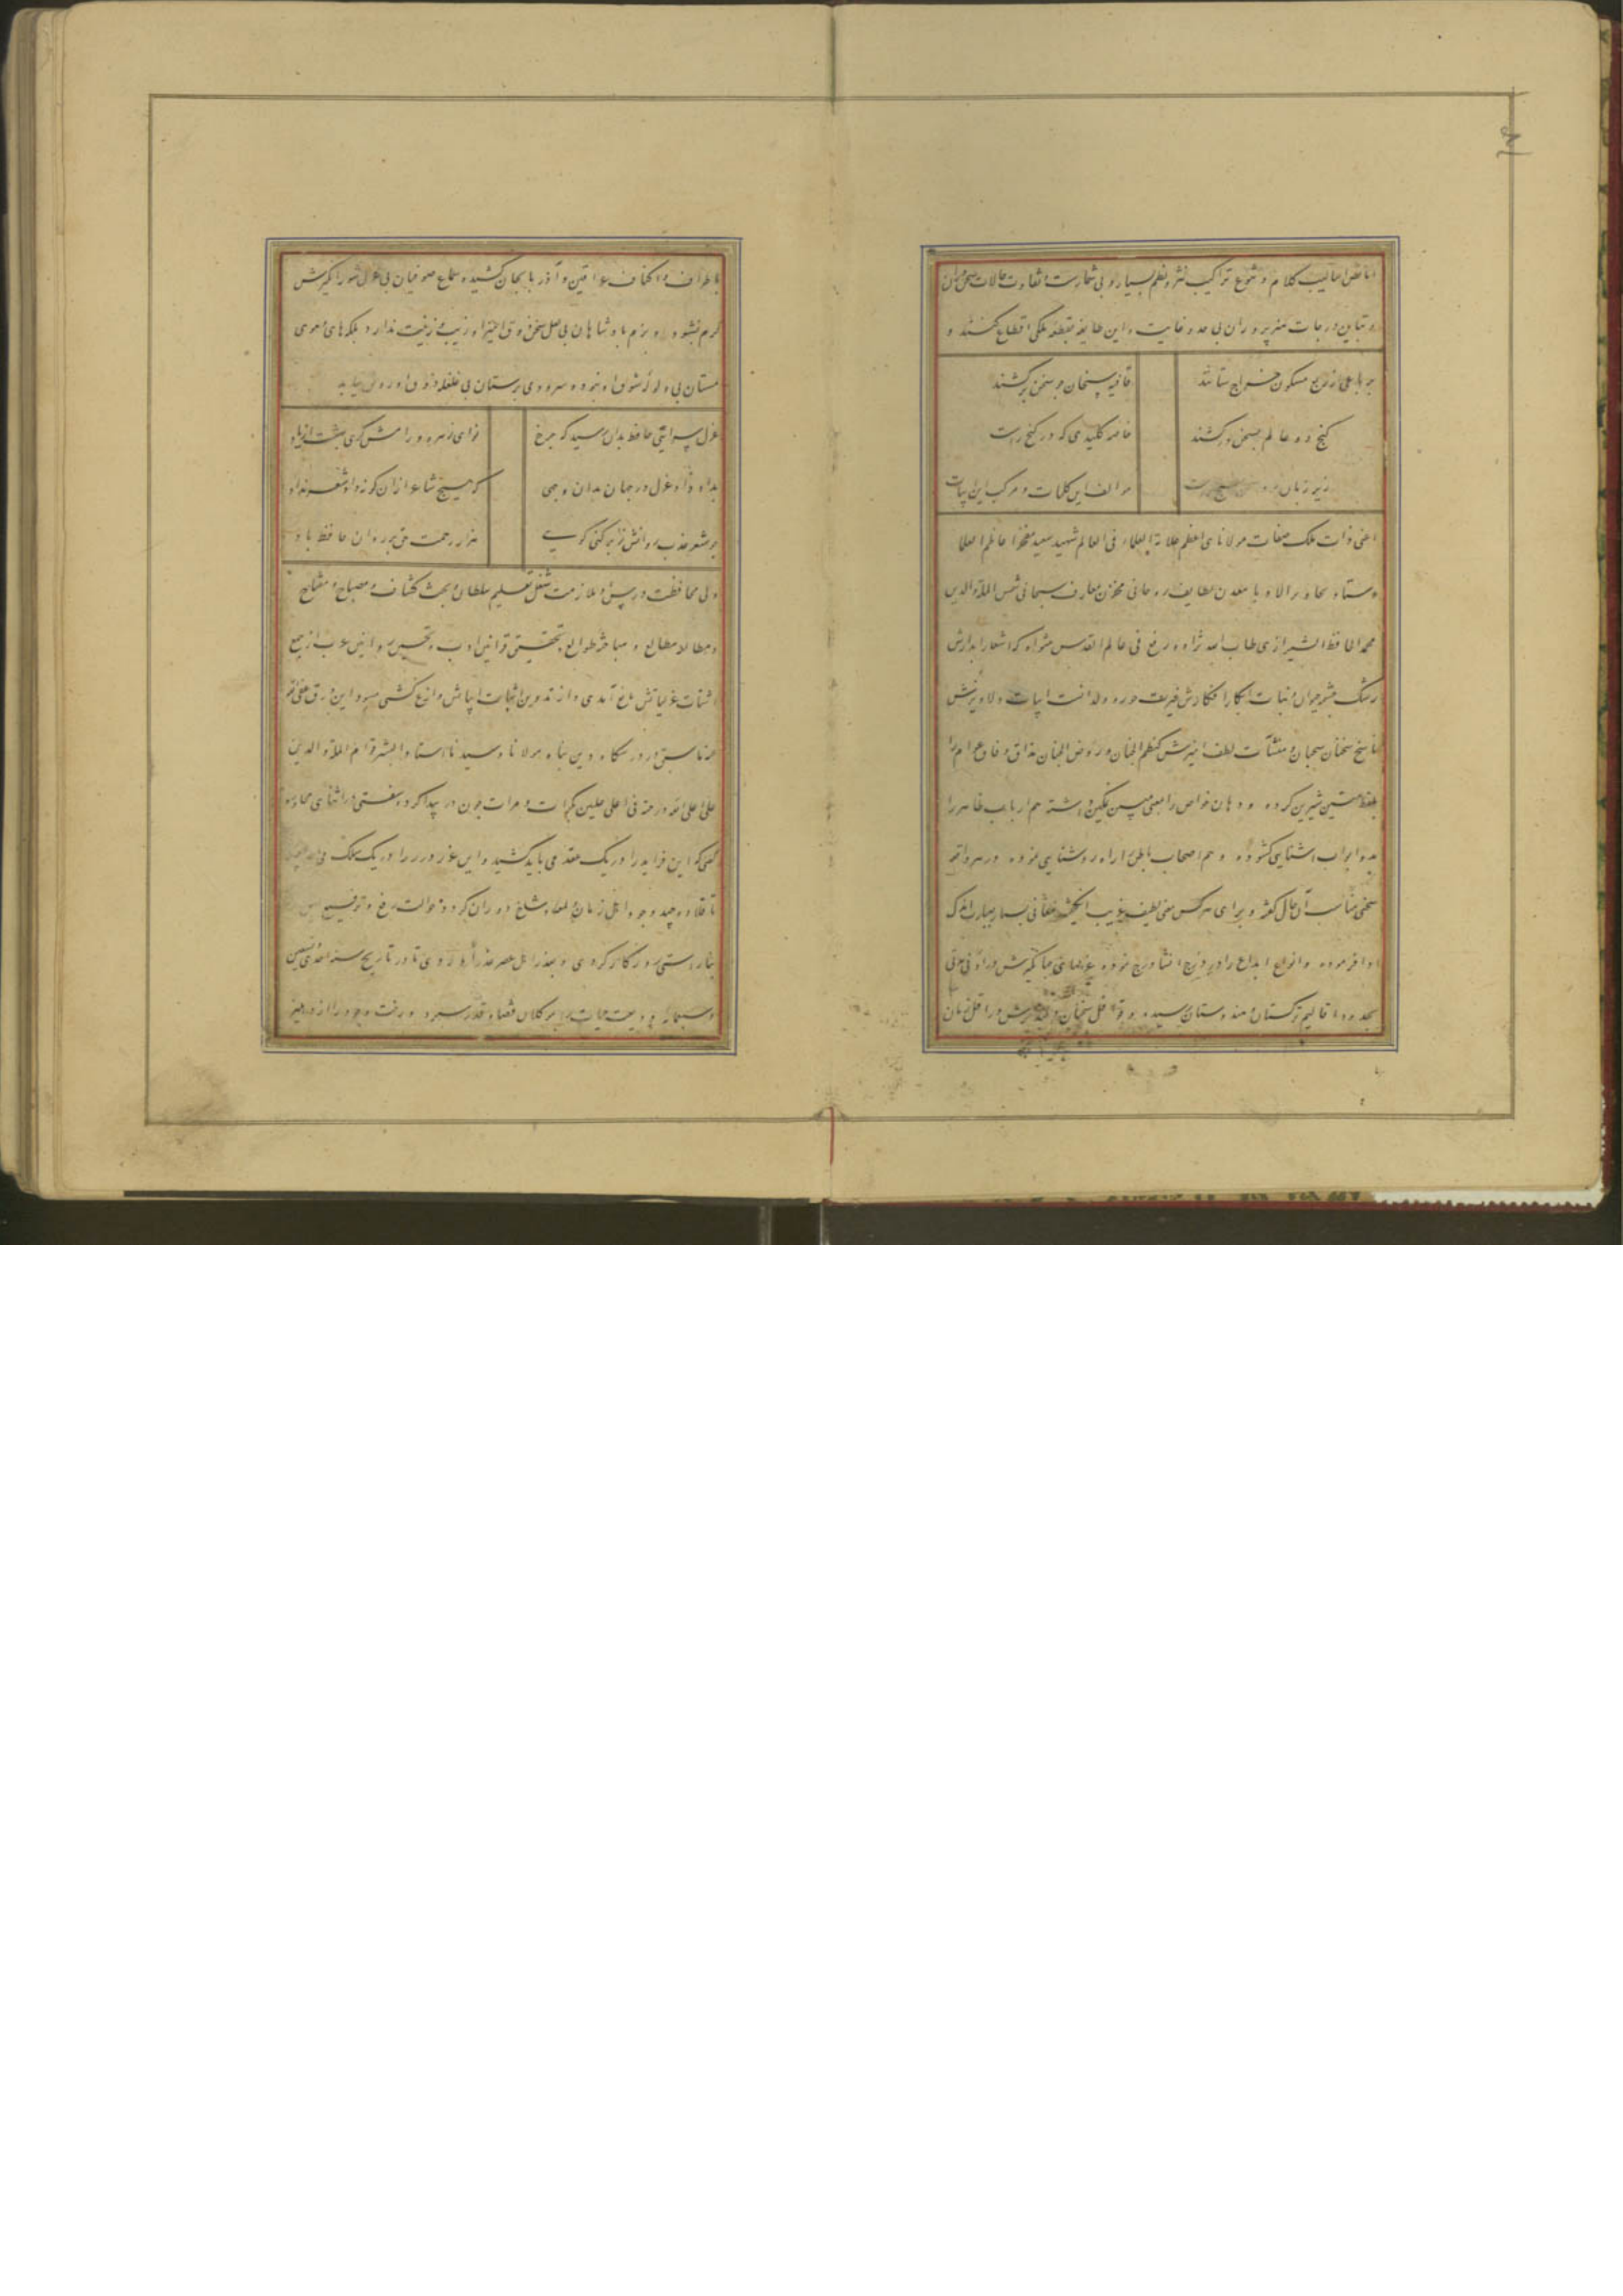 اما نقص اسالیب کلام و تنوع تراکیب نثر و نظم بسیار و بی شمارست و تفاوت حالات سخن وران
و تباین درجات هنرپروران بی حد و غایت و این طایفه بقطعه ملکی اقطاع کنند و
خراج ستانند
قافیه سنجان چو سخن برکشند
گنج دو عالم بسخن درکشند
خاصه کلیدی که در گنج راست
زیر زبان
مؤلف این کلمات و مرکب این ابیات
اعنی ذات ملک صفات مولانای اعظم علامة العلماء فی العالم شهید سعید مفخر افاضل العلما
استاد نحاریر الادبا معدن لطایف روحانی مخزن معارف سبحانی شمس الملة و الدین
محمد الحافظ الشیرازی طاب الله ثراه و رفع فی عالم القدس مثواه که اشعار آبدارش
رشک چشمه حیوان و بنات ابکار افکارش غیرت حور و ولدانست ابیات دلاویزش
ناسخ سخنان سحبان و منشآت لطف آمیزش کنظم الجمان و روض الجنان مذاق عوام را
بلفظ متین شیرین کرده و دهان خواص را بمعنی مبین نمکین داشته هم ارباب ظاهر را
بدو ابواب آشنایی گشوده و هم اصحاب باطن را راه روشنایی نموده در هر واقعه
سخنی مناسب آن حال گفته و برای هر کس معنی لطیف غریب انگیخته معانی بسیار بعبارت اندک
ادا فرموده و انواع ابداع را در درج انشا درج نموده غزلهای جهانگیرش در ادنی مدتی
بحدود اقالیم ترکستان و هندوستان رسیده و قوافل سخنان دلپذیرش در اقل زمان
باطراف و اکناف عراقین و آذربایجان کشیده سماع صوفیان بی غزل شورانگیزش
گرم نشود و بزم پادشاهان بی نقل سخن ذوق آمیز او زیب و زینت ندارد بلکه های و هوی
مستان بی ولوله شوق او نبود و سرود می پرستان بی غلغله ذوق او رونق نیابد
غزل سرایی حافظ بدان رسید که چرخ
نوای زهره و رامشگری بهشت از یاد
بداد داد غزل در جهان بدان وجهی
که هیچ شاعر ازان گونه داد شعر نداد
چو شعر عذب روانش ز بر کنی گویی
هزار رحمت حق بر روان حافظ باد
ولی محافظت درس و ملازمت شغل تعلیم سلطان و بحث کشاف و مصباح و مفتاح
و مطالعه مطالع و مباحثه طوالع و تحقیق قوانین ادب و تحسین دواوین عرب از جمع
اشتات غزلیاتش مانع آمدی و از تدوین اثبات ابیاتش وازع گشتی مسود این ورق
در درسگاه دین پناه مولانا و سیدنا استاد البشر قوام الملة و الدین
علی اعلی الله درجته فی اعلی علیین بکرات و مرات چون در پیدا کرده سفتی در اثنای محاوره
گفتی که این فواید را در یک عقد می باید کشید و این غرر درر را در یک سلک
تا قلاده جید وجود اهل زمان و تمیمه وشاح دوران گردد و حوالت رفع و ترفیع
بناراستی روزگار کردی و بغدر اهل عصر عذر آوردی تا در تاریخ سنه احدی تسعین
و سبعمایه ودیعت حیات را بموکلان قضا و قدر سپرد و رخت وجود را از دهلیز